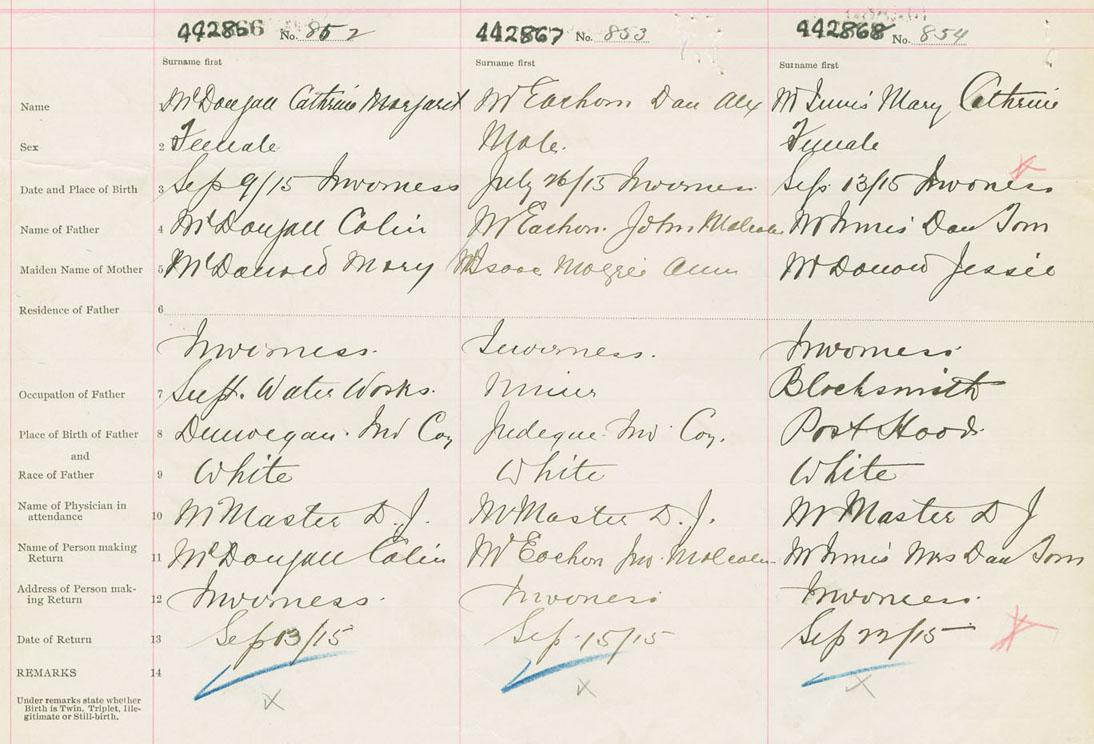 442866 No. 852 442867 No. 853 442868 No. 854
Surname first Surname first Surname first
Name McDougall Cathrine Margaret McEachern Dan Alex McInnis Mary Cathrine
Sex 2 Female Male. Female
Date and Place of Birth 3 Sep 9/15 Inverness July 26/15 Inverness Sep. 13/15 Inverness
Name of Father 4 McDougall Colin McEachern. John Malcolm McInnis Dan Tom
Maiden Name of Mother 5 McDonald Mary McIsaac Maggie Ann McDonald Jessie
Residence of Father 6
Inverness. Inverness. Inverness.
Occupation of Father 7 Supt. Water Works. Miner Blacksmith
Place of Birth of Father 8 Dunvegan. Inv Coy Judique Inv. Coy. Port Hood.
and
Race of Father 9 White White White
Name of Physician in attendance 10 McMaster D. J. McMaster D. J. McMaster D J
Name of Person making Return 11 McDougall Colin McEachern Jno. Malcolm McInnis Mrs Dan Tom
Address of Person making Return 12 Inverness. Inverness Inverness.
Date of Return 13 Sep 13/15 Sep. 15/15 Sep 22/15
REMARKS 14
Under remarks state whether
Birth is Twin, Triplet, Ille-
gitimate or Still-birth.